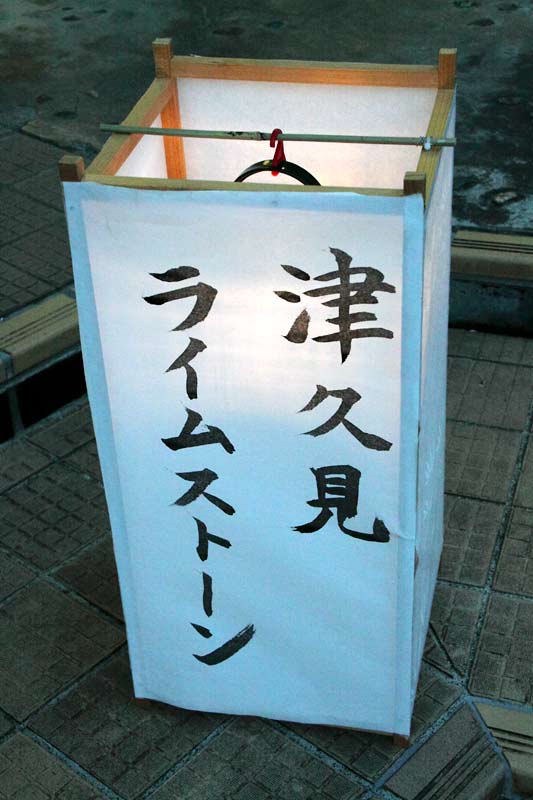 津久見
ライムストーン